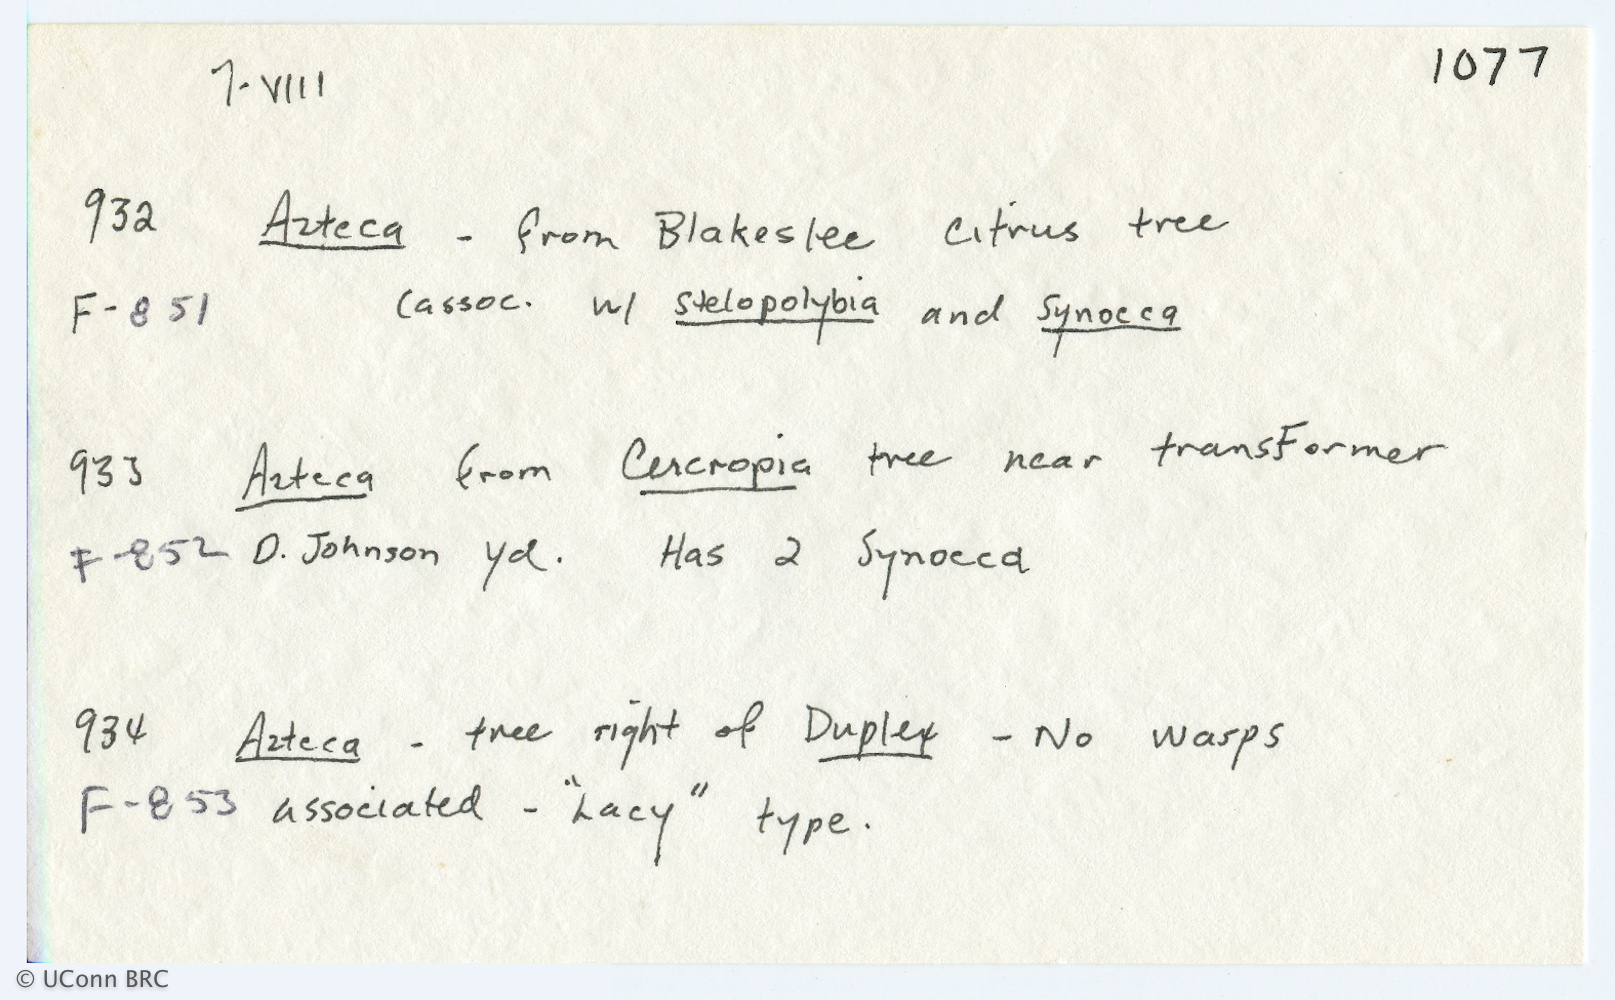 7-VIII 1077
932 Azteca - from Blakeslee citrus tree
F-851 (assoc. w/ Stelopolybia and Synoeca
933 Azteca from Cercropia tree near transformer
F-852 D. Johnson yd. Has 2 Synoeca
934 Azteca - tree right of Duplex - No wasps
F-853 associated - "Lacy" type.
© UConn BRC